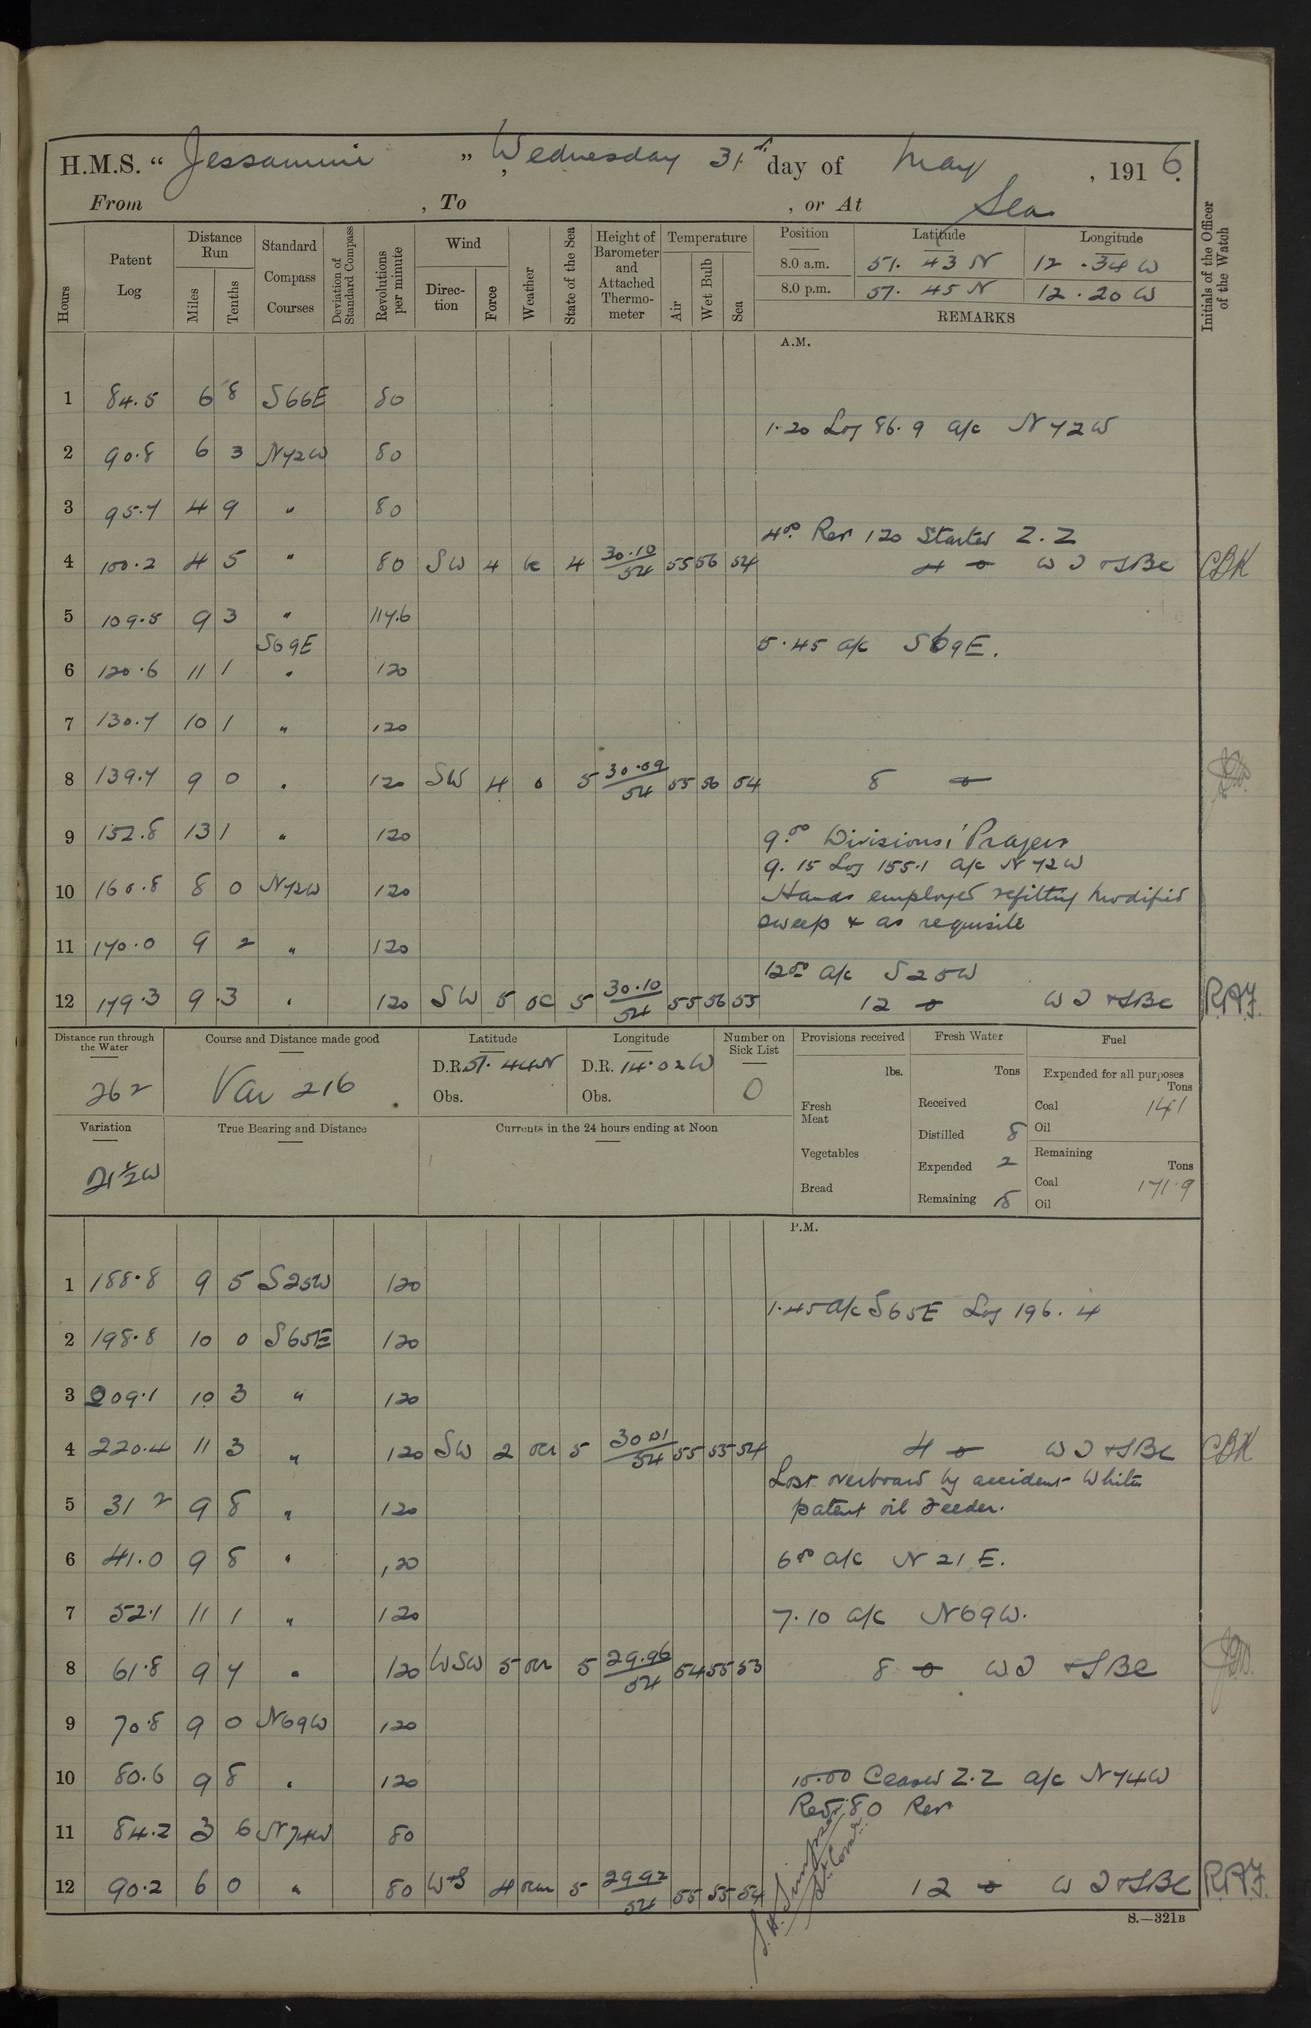 H.M.S. “ Jessamine ” , Wednesday 31st day of May , 1916.
From , To , or At Sea
Hours
Patent Log
Distance Run
Miles
Tenths
Standard Compass Courses
Deviation of Standard Compass
Revolutions per minute
Wind
Direc-tion
Force
Weather
State of the Sea
Height of Barometer and Attached Thermo-meter
Temperature
Air
Wet Bulb
Sea
Position Latitude Longitude
8.0 a.m. 51. 43 N 12 . 34 W
8.0 p.m. 51. 45 N 12 . 20 W
REMARKS
Initials of the Officer of the Watch
A.M.
1 84.5 6 8 S66E 80
1.20 Log 86.9 a/c N72W
2 90.8 6 3 N72W 80
3 95.7 4 9 " 80
4.00 Rev 120 Started Z.Z
4 100.2 4 5 " 80 SW 4 bc 4 30.10/54 55 56 54 4 W T & SBC CBK
5 109.5 9 3 " 117.6
S69E 5.45 a/c S69E.
6 120.6 11 1 " 120
7 130.7 10 1 " 120
8 139.7 9 0 " 120 SW 4 o 5 30.09/54 55 56 54 8
9 152.8 13 1 " 120 9.00 Divisions, Prayers
9.15 Log 155.1 a/c N72W
10 160.8 8 0 N72W 120 Hands employed refitting modified
sweep & as requisite
11 170.0 9 2 " 120
12.00 a/c S25W
12 179.3 9.3 " 120 SW 5 oc 5 30.10/54 55 56 55 12 W T & SBC R.A.F.
Distance run through the Water
262
Course and Distance made good
Var 216
Latitude
D.R. 51. 44N
Obs.
Longitude
D.R. 14.02W
Obs.
Number on Sick List
0
Provisions received
lbs.
Fresh Meat
Vegetables
Bread
Fresh Water
Tons
Received
Distilled 8
Expended 2
Remaining 15
Fuel
Expended for all purposes
Tons
Coal 141
Oil
Remaining
Tons
Coal 171.9
Oil
Variation
21½W
True Bearing and Distance
Currents in the 24 hours ending at Noon
P.M.
1 188.8 9 5 S25W 120
1.45 a/c S65E Log 196.4
2 198.8 10 0 S65E 120
3 209.1 10 3 " 120
4 220.4 11 3 " 120 SW 2 5 30 01/54 55 55 54 4 W T & SBC CBK
Lost overboard by accident White's
5 31 2 9 8 " 120 patent oil feeder.
6 41.0 9 8 " 120 6.00 a/c N 21 E.
7 52.1 11 1 " 120 7.10 a/c N69W.
8 61.8 9 7 " 120 WSW 5 5 29.96/54 54 55 53 8 W T & SBC
9 70.8 9 0 N69W 120
10 80.6 9 8 " 120 10.00 Ceased Z.Z a/c N74W
80 Rev
11 84.2 3 6 N74W 80
12 90.2 6 0 " 80 WS 4 5 2992/54 55 55 54 12 W T & SBC R.A.F.
S.—321B